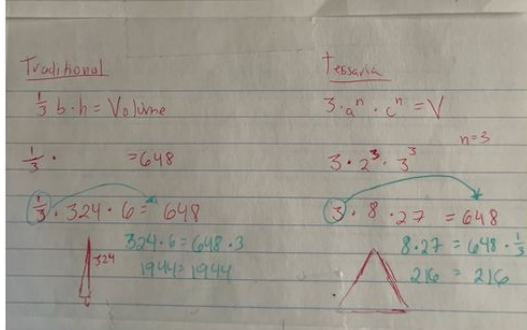 Traditional
1/3 b·h = Volume
1/3 · = 648
1/3 · 324 · 6 = 648
324·6 = 648·3
1944 = 1944
324
6
Tessaria
3·aⁿ·cⁿ = V
n=3
3·2³·3³
3 · 8 · 27 = 648
8·27 = 648·1/3
216 = 216